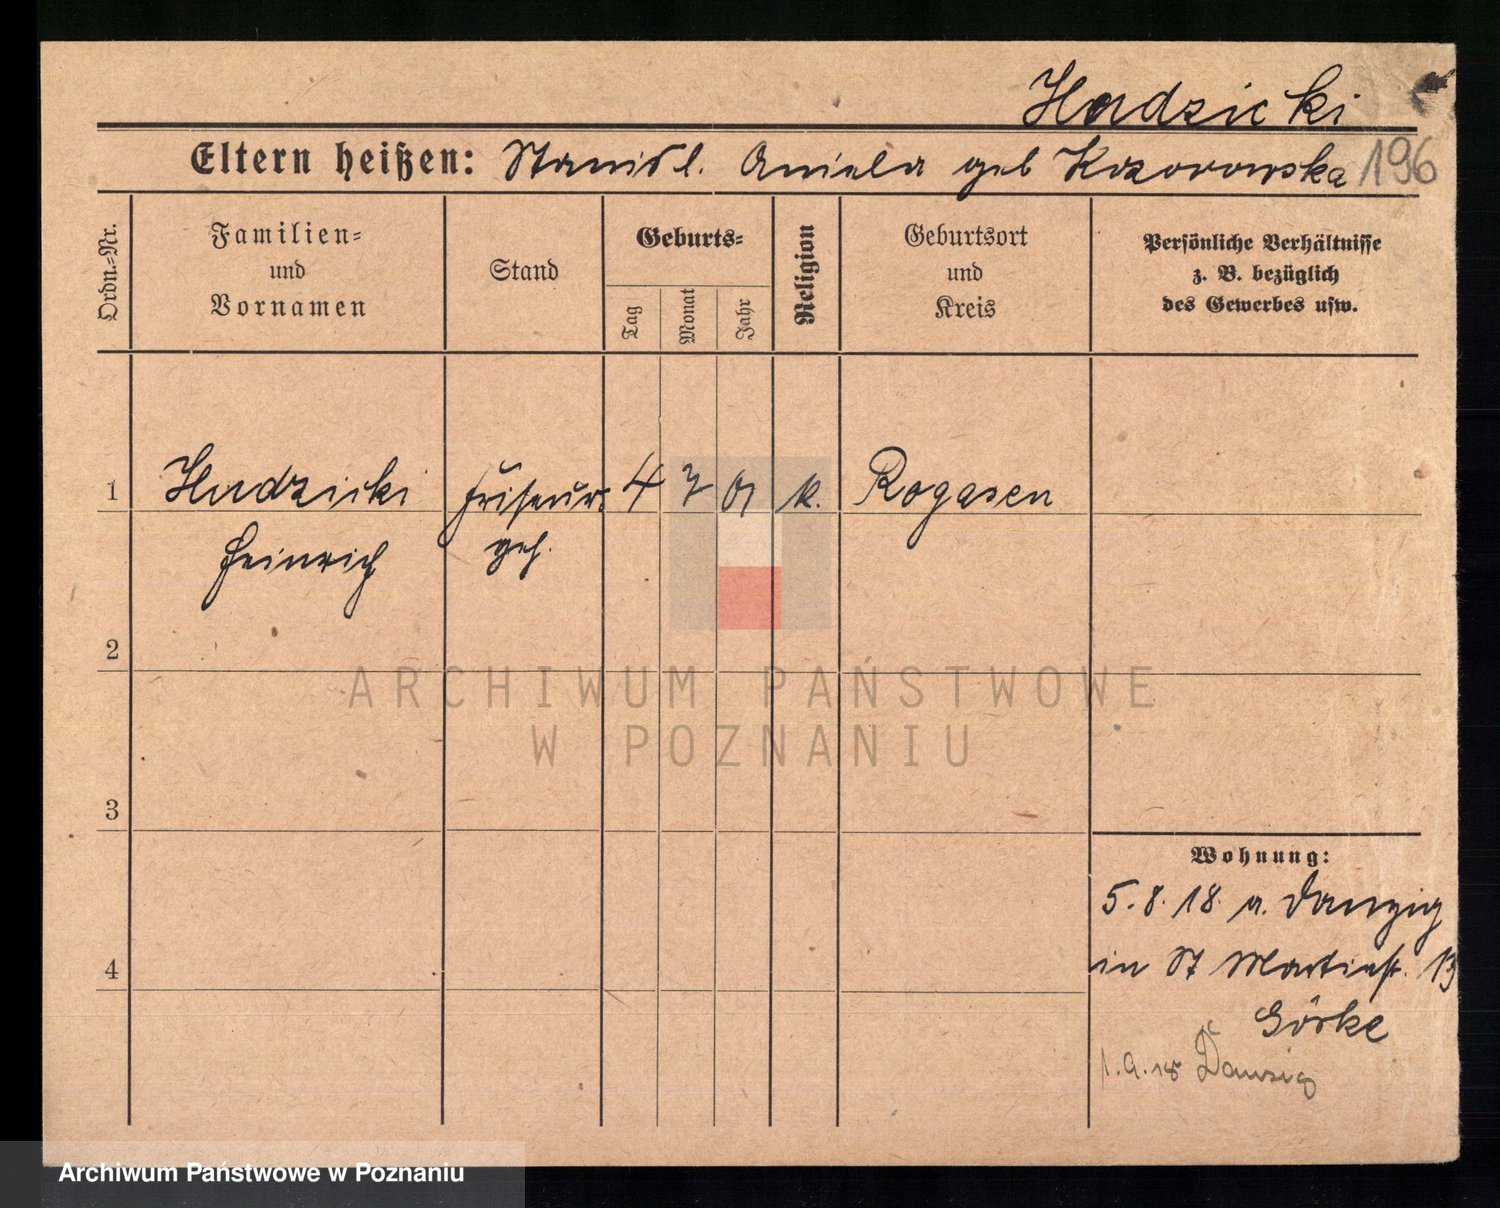 Hudzicki
Eltern heißen: Stanisl. Aniela geb Kozorowska 196
Ordn.-Nr.
Familien-
und
Vornamen
Stand
Geburts-
Tag
Monat
Jahr
Religion
Geburtsort
und
Kreis
Persönliche Verhältnisse
z. B. bezüglich
des Gewerbes usw.
1 Hudzicki Friseur 4 7 01 k. Rogasen
Heinrich geh.
2
ARCHIWUM PAŃSTWOWE
W POZNANIU
3
Wohnung:
5.8.18 a. Danzig
4
in St Martinstr. 13
Görke
1.9.18 Danzig
Archiwum Państwowe w Poznaniu